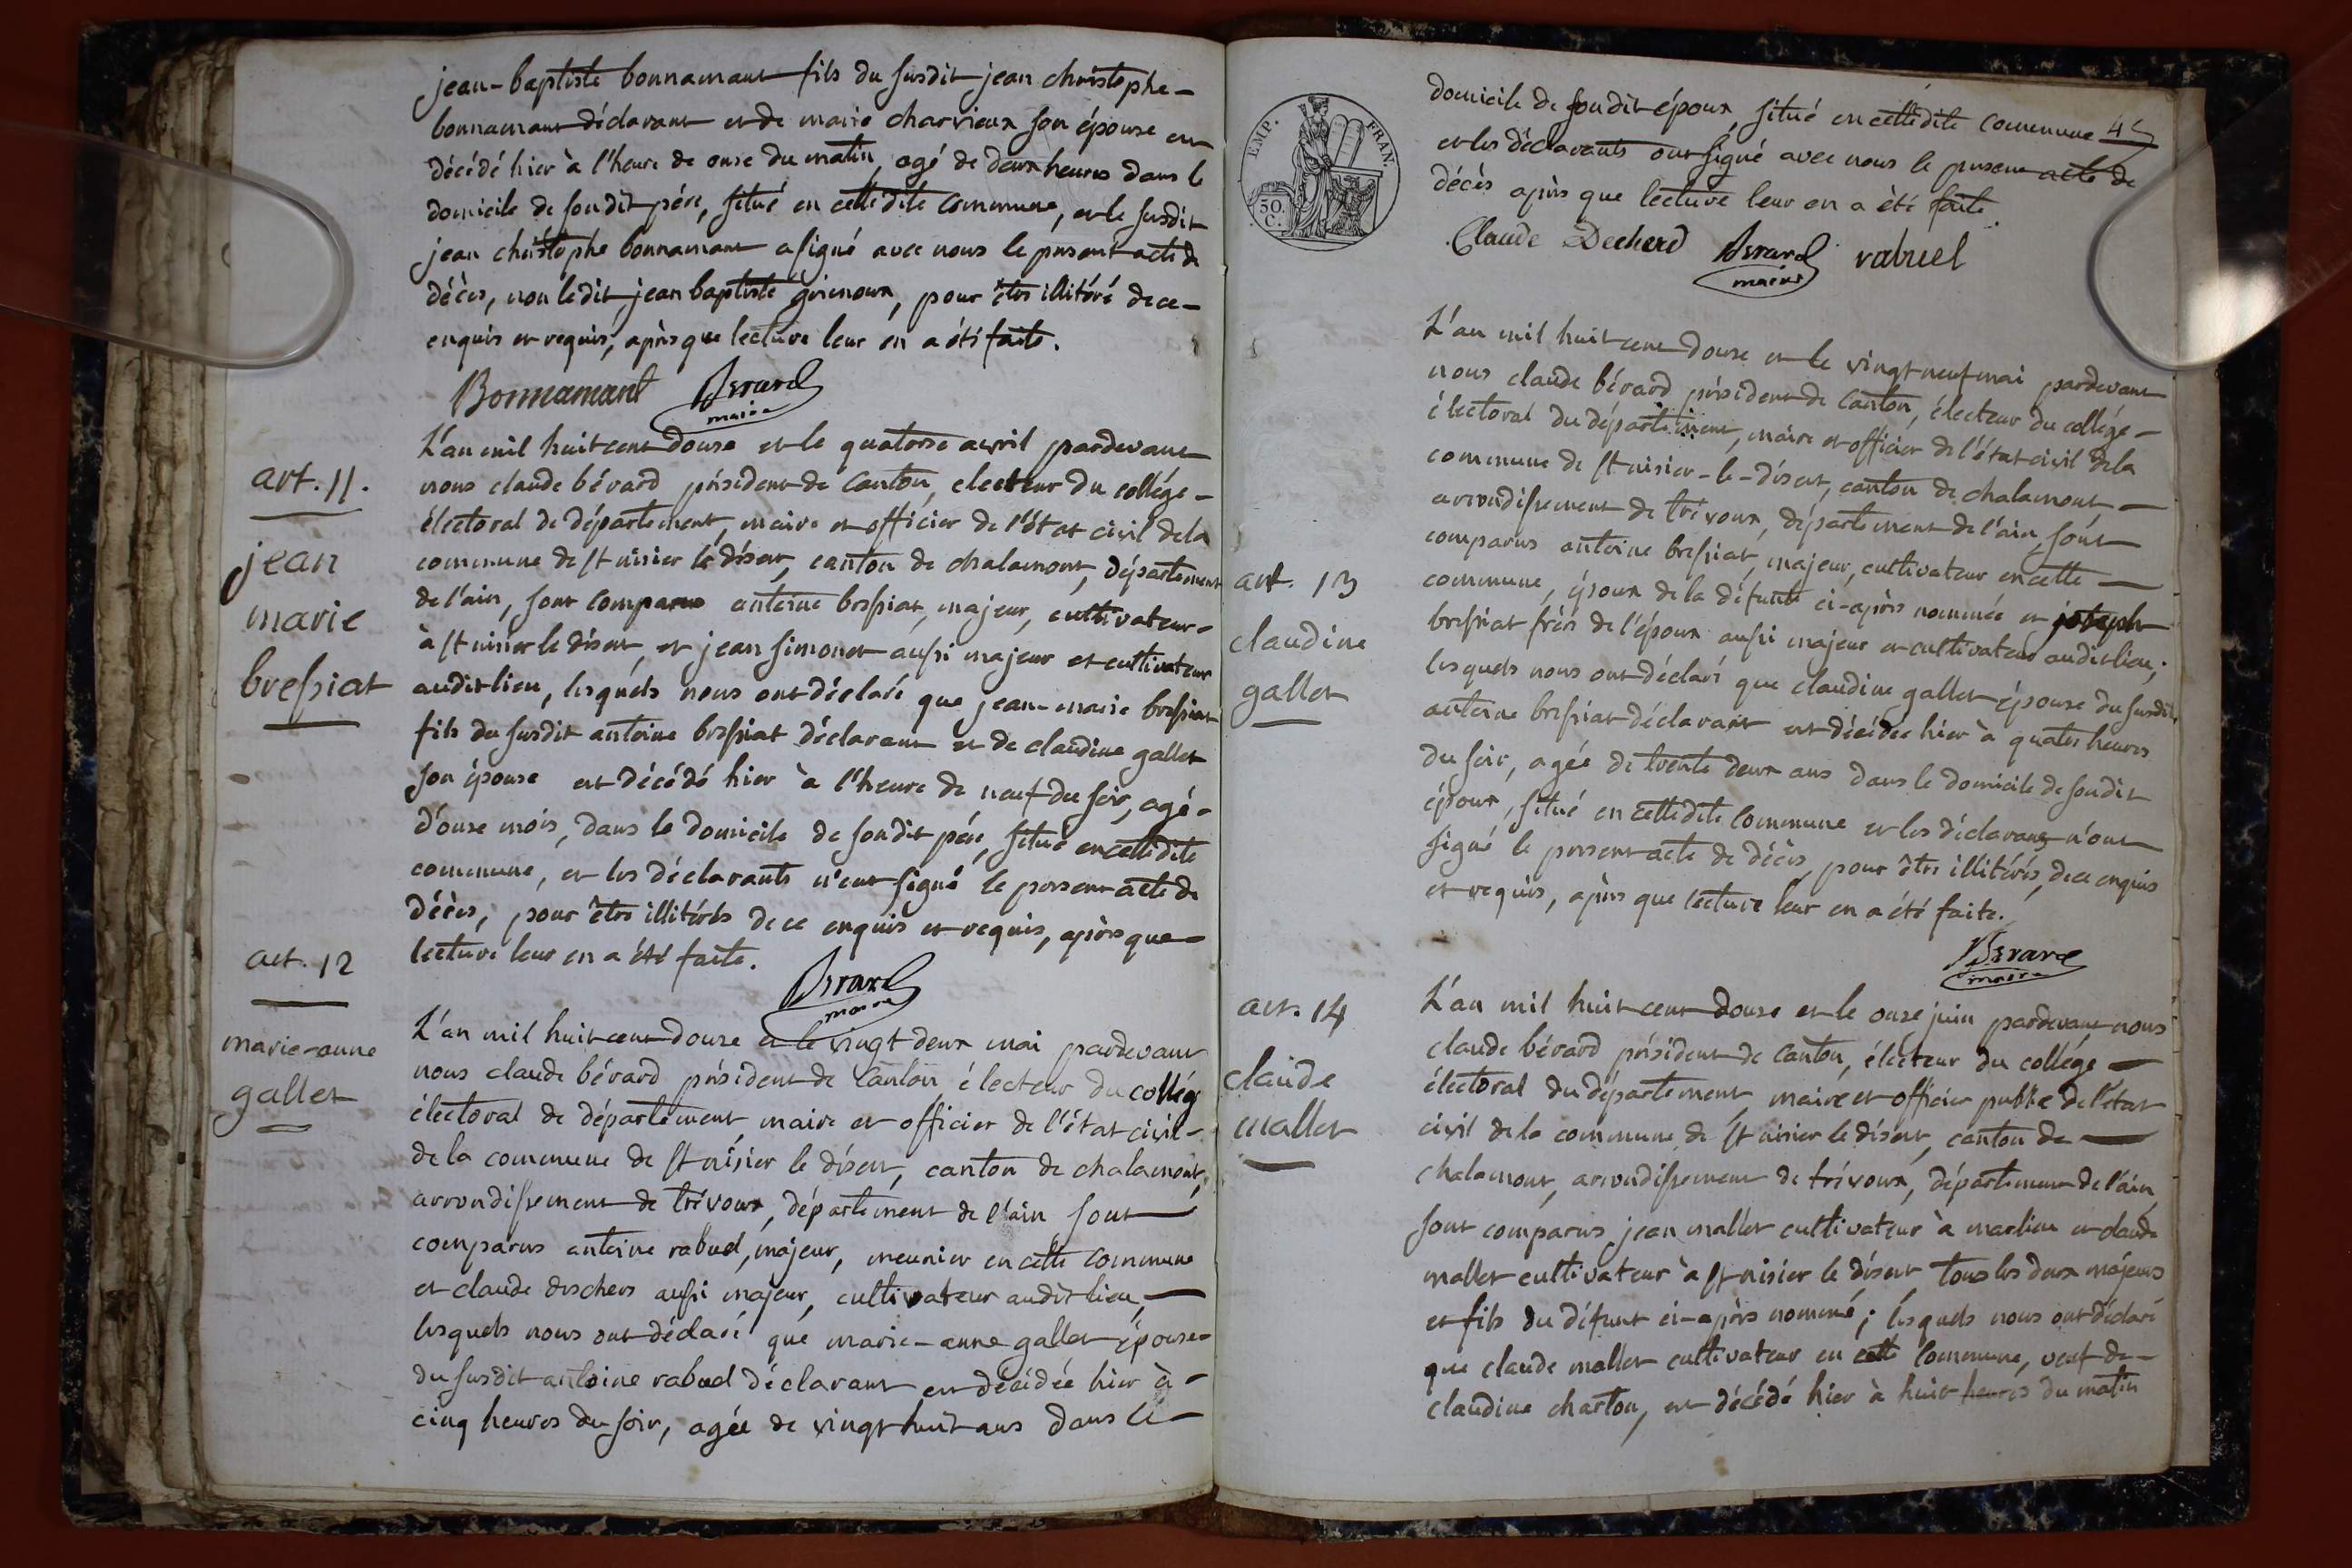 jean-baptiste bonnamant fils du susdit jean christophe-
bonnamant déclarant et de marie charvieux son épouse est
décédé hier à l'heure de onse du matin, agé de deux heures dans le
domicile de sondit pére, situé en cettedite commune, et le susdit
jean christophe bonnamant a signé avec nous le present acte de
décès, non ledit jean baptiste girinoux, pour être illitéré de ce-
enquis et requis, après que lecture leur en a été faite.
Bonnamant Berard
maire
art. 11.
jean
marie
bressiat
L'an mil huit cent douse et le quatorse avril pardevant
nous claude bérard président de canton, electeur du collége-
électoral de département, maire et officier de l'état civil dela
commune de st nisier le désert, canton de chalamont, département
de l'ain, sont comparus antoine bressiat, majeur, cultivateur-
à st nisier le désert, et jean simonet aussi majeur et cultivateur
audit lieu, lesquels nous ont déclaré que jean-marie bressiat
fils du susdit antoine bressiat déclarant et de claudine gallet
son épouse est décédé hier à l'heure de neuf du soir, agé-
d'onse mois, dans le domicile de sondit pére, situé encettedite
commune, et les déclarants n'ont signé le present acte de
décès, pour être illitérés de ce enquis et requis, après que-
lecture leur en a été faite.
Berard
maire
art. 12
marie-anne
gallet
L'an mil huit cent douse et le vingt deux mai pardevant
nous claude bérard président de canton électeur du collég
électoral de département maire et officier de l'état civil-
de la commune de st nisier le désert, canton de chalamont,
arrondissement de trévoux, département de l'ain sont
comparus antoine rabuel, majeur, meunier en cette commune
et claude deschers aussi majeur, cultivateur audit lieu,
lesquels nous ont déclaré que marie-anne gallet épouse-
du susdit antoine rabuel déclarant est décédée hier à-
cinq heures du soir, agée de vingt huit ans dans le-
EMP. FRAN.
50.
C.
domicile de sondit époux, situé en cettedite commune 45
et les déclarants ont signé avec nous le present acte de
décès après que lecture leur en a été faite.
Claude Decherd Berard rabuel
maire
art. 13
claudine
gallet
L'an mil huit cent douse et le vingt neuf mai pardevant
nous claude bérard président de canton, électeur du collége-
électoral du département, maire et officier de l'état civil dela
commune de st nisier-le-désert, canton de chalamont,
arrondissement de trévoux, département de l'ain, sont
comparus antoine bressiat, majeur, cultivateur encette
commune, époux de la défunte ci-après nommée et joseph
bressiat frère de l'époux aussi majeur et cultivateur audit lieu;
lesquels nous ont déclaré que claudine gallet épouse du susdit
antoine bressiat déclarant est décédée hier à quatre heures
du soir, agée de trente deux ans dans le domicile de sondit
époux, situé en cettedite commune et les déclarants n'ont
signé le present acte de décès, pour être illitérés, de ce enquis
et requis, après que lecture leur en a été faite.
Berard
maire
art. 14
claude
mallet
L'an mil huit cent douse et le onse juin pardevant nous
claude bérard président de canton, électeur du collége
électoral du département, maire et officier public de l'état
civil de la commune de st nisier le désert, canton de
chalamont, arrondissement de trévoux, département de l'ain,
sont comparus jean mallet cultivateur à marlieu et claude
mallet cultivateur à st nisier le désert tous les deux majeurs
et fils du défunt ci-après nommé; lesquels nous ont déclaré
que claude mallet cultivateur en cette commune, veuf de-
claudine charton, est décédé hier à huit heures du matin